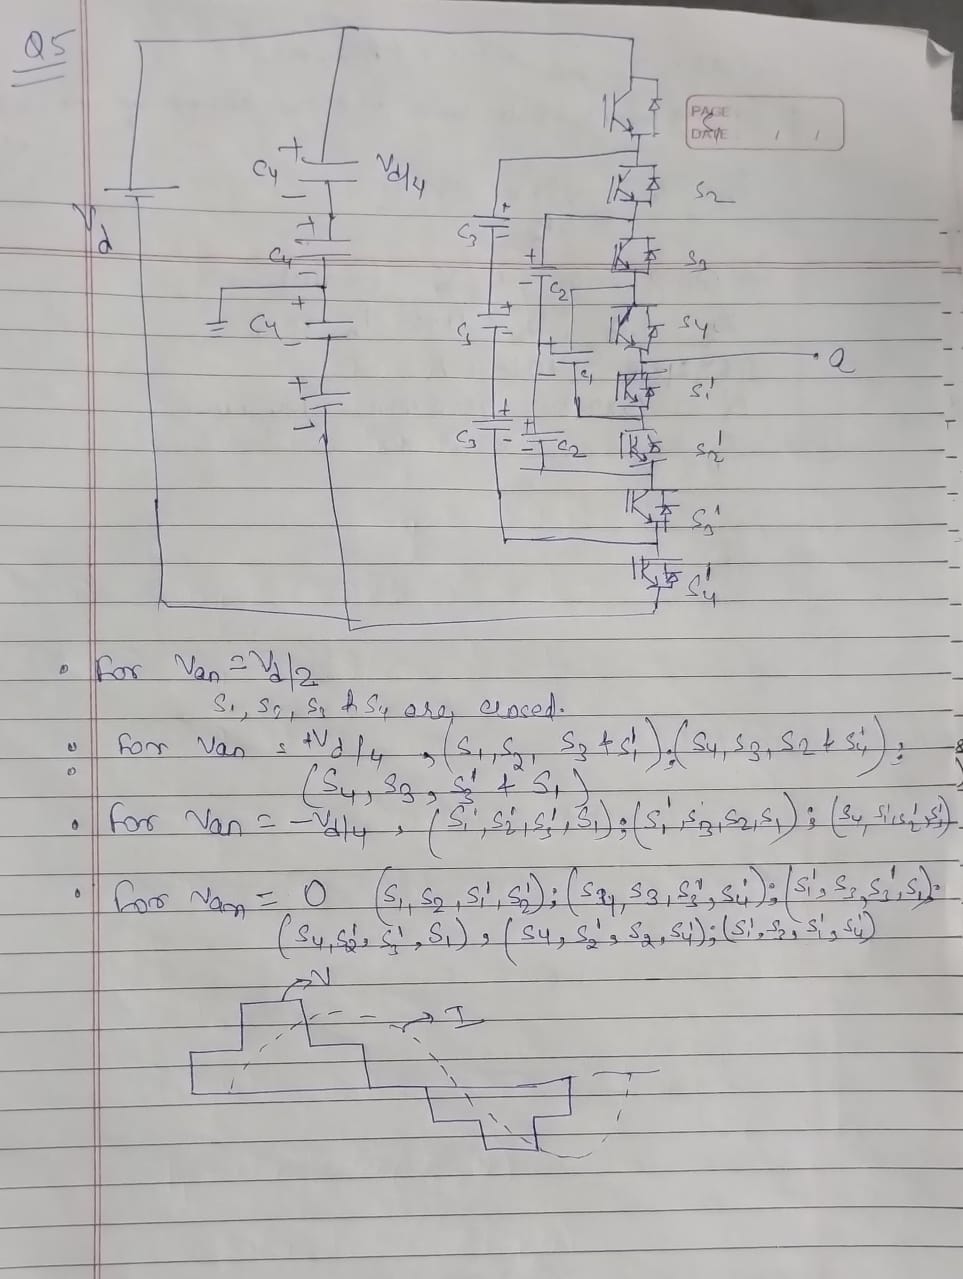 Q5
PAGE
DATE
C4 Vd/4
S2
Vd
C3
C4
S3
C2
C4
S4
C3
a
C1
S1'
C3
C2
S2'
S3'
S4'
• For Van = Vd/2
S1, S2, S3 & S4 are closed.
• For Van = +Vd/4 , (S1, S2, S3 & S1') ; (S4, S3, S2 & S4') ;
(S4, S3, S3' & S1)
• For Van = -Vd/4 , (S1', S2', S3', S1) ; (S1', S3, S2, S1) ; (S4, S1', S2', S3')
• For Van = 0 (S1, S2, S1', S2') ; (S4, S3, S3', S4') ; (S1', S3, S3', S1) ;
(S4, S2', S3', S1) , (S4, S2', S2, S4') ; (S1', S3, S1', S4')
V
I